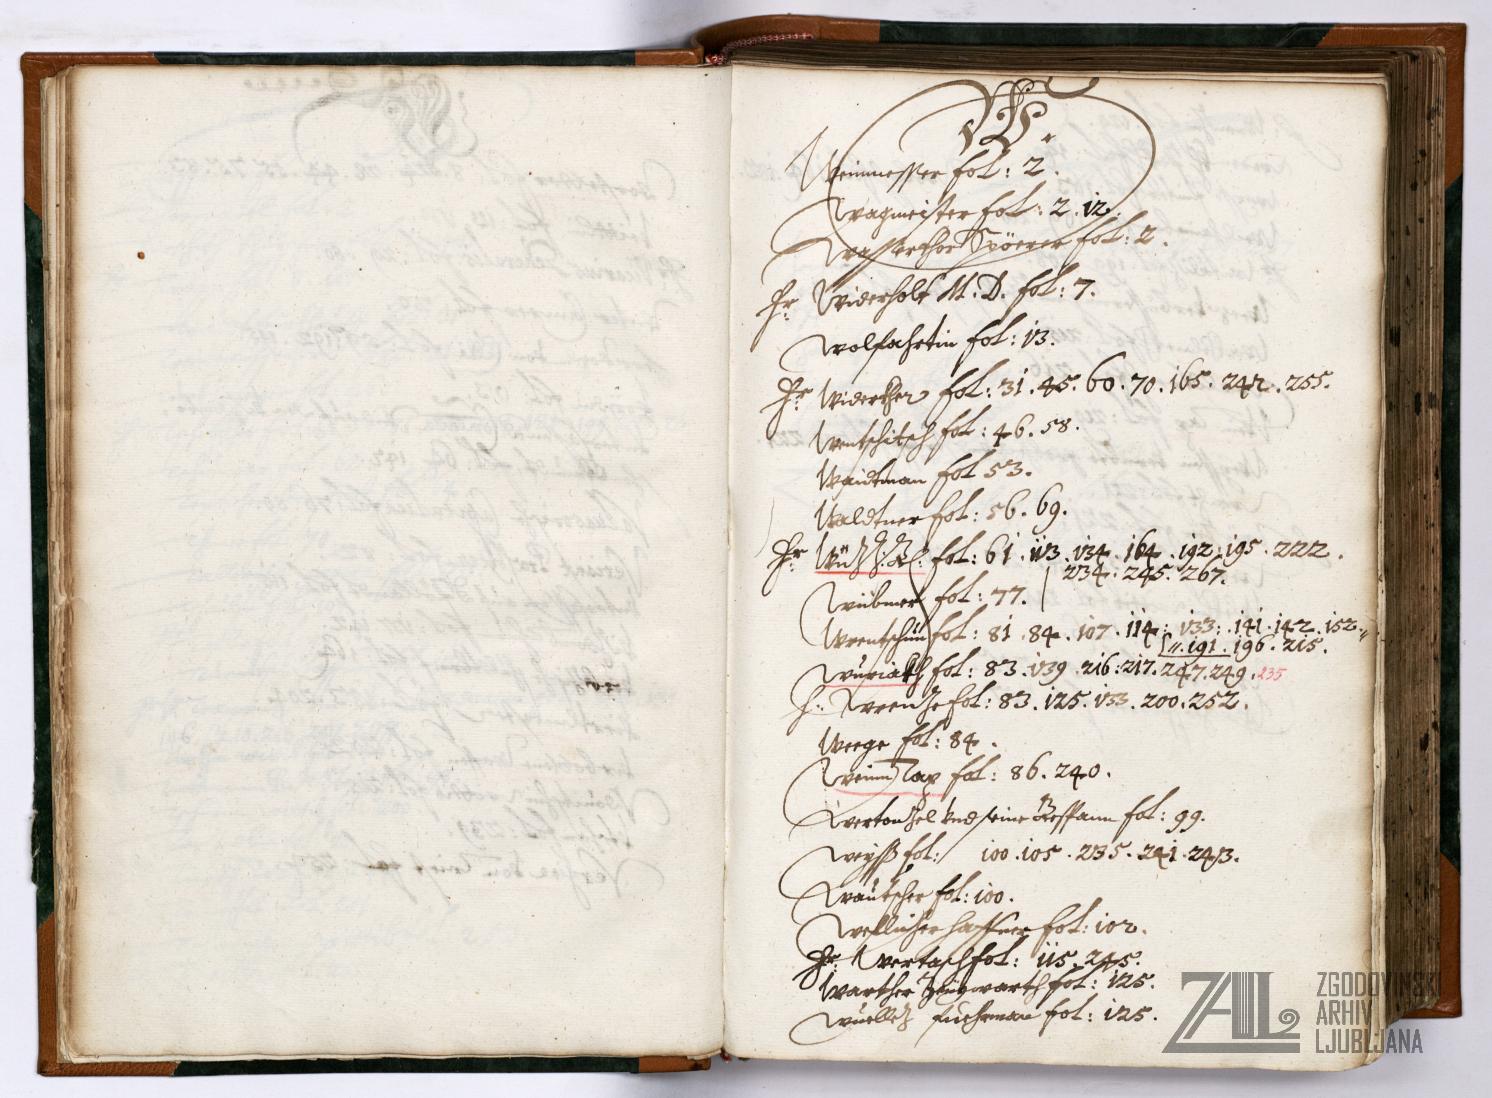 W.
Weinmesser fol: 2.
Wagmeister fol: 2. 12.
Wasserthor Spöerer fol: 2.
Hr. Widerholt M. D. fol: 7.
Wolfahrtin fol: 13.
Hr. Widerkher fol: 31. 45. 60. 70. 165. 242. 255.
Wentschitsch fol: 46. 58.
Waidtman fol 53.
Waldtner fol: 56. 69.
Hr. fol: 61. 113. 134. 164. 192. 195. 222.
234. 245. 267.
Wibmer fol: 77.
Wrentschün fol: 81. 84. 107. 114: 133: 141. 142. 152.
191. 196. 215.
Wuriakh fol: 83. 139. 216. 217. 247. 249. 235
H: fol: 83. 125. 133. 200. 252.
Weege fol: 84.
Wein Tax fol: 86. 240.
Wertonzel und seine Respann fol: 99.
Weyss fol: 100. 105. 235. 241. 243.
Wautscher fol: 100.
Haffner fol: 102.
Hr. Wertasch fol: 115. 245.
Warther Zeugwarth fol: 125.
Fuehrman fol: 125.
ZAL
ZGODOVINSKI
ARHIV
LJUBLJANA